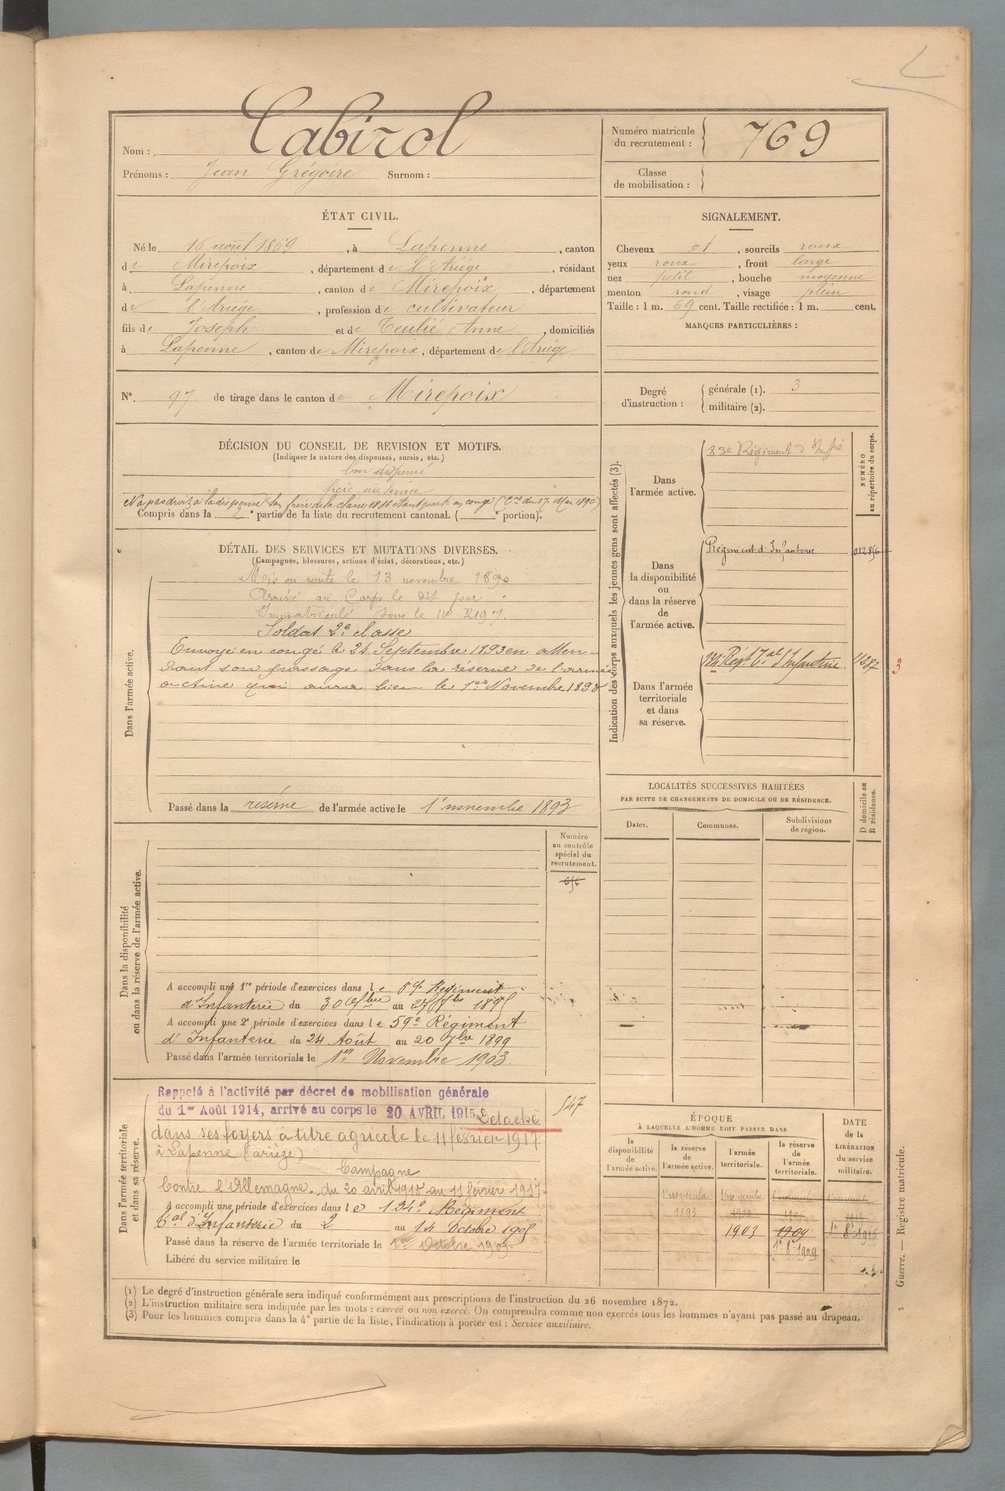 Nom : Cabirol
Prénoms : Jean Grégoire Surnom :
Numéro matricule du recrutement : 769
Classe de mobilisation :
ÉTAT CIVIL.
Né le 16 août 1869, à Lapenne, canton
de Mirepoix, département de l'Ariège, résidant
à Lapenne, canton de Mirepoix, département
de l'Ariège, profession de cultivateur
fils de Joseph et de Teulié Anne, domiciliés
à Lapenne, canton de Mirepoix, département de l'Ariège
SIGNALEMENT.
Cheveux et, sourcils roux
yeux roux, front large
nez petit, bouche moyenne
menton rond, visage plein
Taille : 1 m. 69 cent. Taille rectifiée : 1 m. cent.
MARQUES PARTICULIÈRES :
N° 97 de tirage dans le canton de Mirepoix
Degré d'instruction : générale (1). 3
militaire (2).
DÉCISION DU CONSEIL DE REVISION ET MOTIFS.
(Indiquer la nature des dispenses, sursis, etc.)
bon dispensé
frère au service
N'a pas droit à la dispense son frère de la classe 1886 étant parti en congé (Cre du 17 Mai 1890)
Compris dans la partie de la liste du recrutement cantonal. ( portion).
DÉTAIL DES SERVICES ET MUTATIONS DIVERSES.
(Campagnes, blessures, actions d'éclat, décorations, etc.)
Dans l'armée active.
Mis en route le 13 novembre 1890
Arrivé au Corps le dit jour
Immatriculé sous le no 2197.
Soldat 2e classe
Envoyé en congé le 24 Septembre 1893 en atten-
dant son passage dans la réserve de l'armée
active qui aura lieu le 1er Novembre 1893
Passé dans la réserve de l'armée active le 1er novembre 1893
Dans la disponibilité ou dans la réserve de l'armée active.
Numéro au contrôle spécial du recrutement.
A accompli une 1re période d'exercices dans le Régiment
d'Infanterie du 30 au 27
A accompli une 2e période d'exercices dans le 59e Régiment
d'Infanterie du 24 Août au 20 7bre 1899
Passé dans l'armée territoriale le 1er Novembre 1903
Dans l'armée territoriale et dans sa réserve.
Rappelé à l'activité par décret de mobilisation générale
du 1er Août 1914, arrivé au corps le 20 AVRIL 1915. Détaché
dans ses foyers à titre agricole le 11 février 1917
à Lapenne (Ariège)
Campagne
Contre l'Allemagne. du 20 avril 1915 au 11 février 1917
A accompli une période d'exercices dans le 134e Régiment
Tal d'Infanterie du 2 au 14 Octobre 1905
Passé dans la réserve de l'armée territoriale le 1er Octobre 1909
Libéré du service militaire le
547
Indication des corps auxquels les jeunes gens sont affectés (3).
NUMÉRO au répertoire du corps.
Dans l'armée active.
83e Régiment d'Infie
Dans la disponibilité ou dans la réserve de l'armée active.
Régiment d'Infanterie
Dans l'armée territoriale et dans sa réserve.
Régt Tal d'Infanterie
3
LOCALITÉS SUCCESSIVES HABITÉES
PAR SUITE DE CHANGEMENTS DE DOMICILE OU DE RÉSIDENCE.
Dates. Communes. Subdivisions de région. D domicile ou R résidence.
ÉPOQUE
À LAQUELLE L'HOMME DOIT PASSER DANS
la disponibilité de l'armée active.
la réserve de l'armée active.
l'armée territoriale.
la réserve de l'armée territoriale.
DATE de la LIBÉRATION du service militaire.
1er novembre 1893
1903
1909
1er 8bre 1909
(1) Le degré d'instruction générale sera indiqué conformément aux prescriptions de l'instruction du 26 novembre 1872.
(2) L'instruction militaire sera indiquée par les mots : exercé ou non exercé. On comprendra comme non exercés tous les hommes n'ayant pas passé au drapeau.
(3) Pour les hommes compris dans la 4e partie de la liste, l'indication à porter est : Service auxiliaire.
Guerre. — Registre matricule.